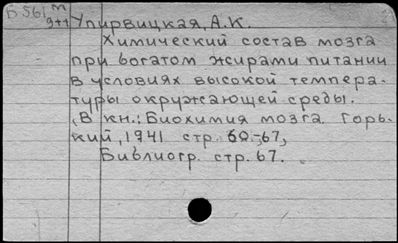 Б 561 m
9+1
Упирвицкая, А.К.
Химический состав мозга
при богатом жирами питании
в условиях высокой темпера-
туры окружающей среды.
(В кн.: Биохимия мозга. Горь-
кий, 1941 стр. 60-67,
Библиогр. стр. 67.